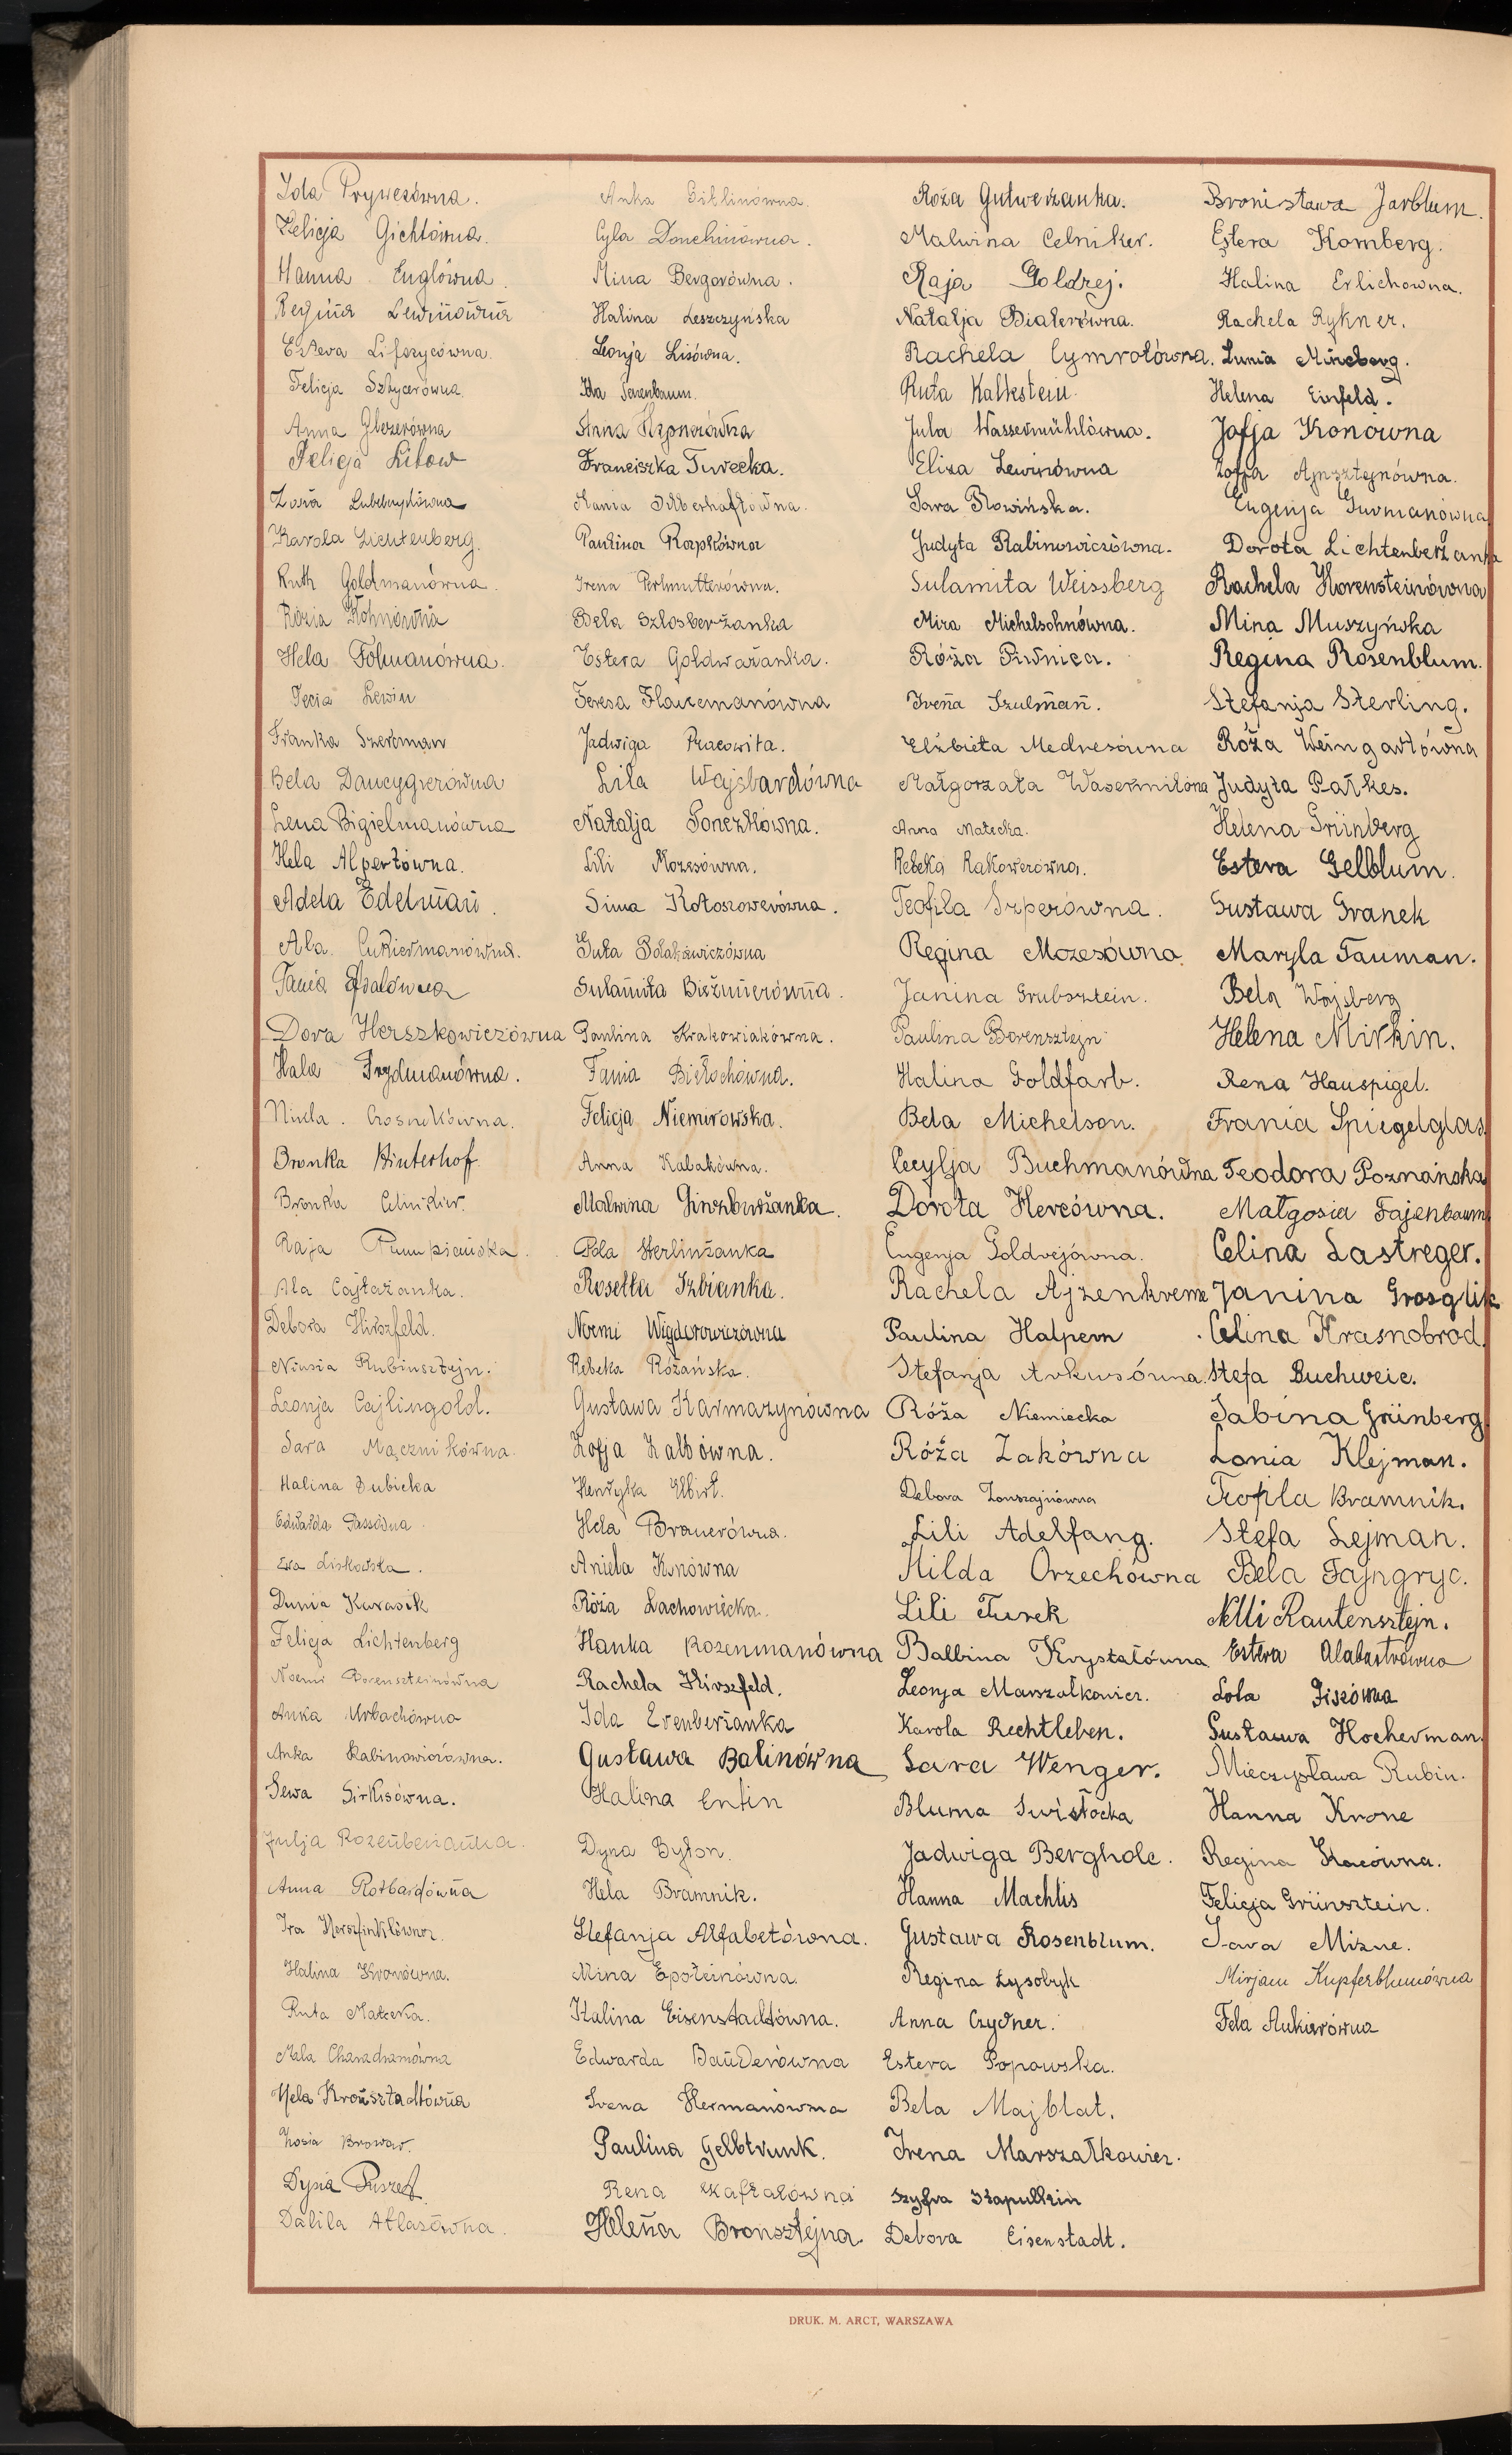 Ida Prywesówna.
Felicja Gichtówna.
Hanna Englówna.
Regina Lewinówna
Estera Lifszycówna.
Felicja Sztycerówna.
Anna Glezerówna
Felicja Libow
Zosia
Karola Lichtenberg.
Ruth Goldmanówna.
Rózia Kohnówna
Hela Folmanówna.
Pecia Lewin
Franka Szercman
Bela Dancygierówna
Lena Bigielmanówna
Hela Alpertówna.
Adela Edelman.
Ala Cukiermanówna.
Fania
Dora Herszkowiczówna
Hala Frydmanówna.
Czosnkówna.
Bronka Hinterhof
Bronka
Raja Rumpiańska.
Ala Cajtażanka.
Debora Hirszfeld.
Niusia Rubinsztejn.
Leonja Cajlingold.
Sara Mącznikówna.
Halina Dubicka
Edwarda Passówna.
Ewa Liskowska.
Dunia Karasik
Felicja Lichtenberg
Noemi Borensteinówna
Anka Urbachówna
Anka Rabinowiczówna.
Sewa Sirkisówna.
Julja Rozenberżanka.
Anna Rotbardówna
Ira Herszfinklówna.
Halina Kronówna.
Ruta Małecka.
Mala
Hela Kronsztadtówna
Zosia Browar.
Dysia
Dalila Atlasówna.
Anka Gitlinówna.
Cyla Donchinówna.
Mina Bergerówna.
Halina Leszczyńska
Leonja Lisówna.
Ida
Anna
Franciszka Turecka.
Mania Silberhaftówna.
Paulina
Irena Perlmutterówna.
Bela Szlosberżanka
Estera Goldważanka.
Teresa Flancmanówna
Jadwiga Pracowita.
Lila Wajsbardówna
Natalja Ponczkówna.
Lili Mozesówna.
Sima Kołoszowerówna.
Guta Polakiewiczówna
Sulamita Bieżunerówna.
Paulina Krakowiakówna.
Fania Biełochówna.
Felicja Niemirowska.
Anna Kabakówna.
Malwina Ginzburżanka.
Pola Berlinżanka
Rosetta Izbianka.
Noemi Wigdorowiczówna
Rebeka Różańska.
Gustawa Karmazynówna
Zofja Zalbówna.
Henryka Elbirt.
Hela Brauerówna.
Aniela Konówna
Róża Lachowicka.
Hanka Rozenmanówna
Rachela Hirszfeld.
Ida Erenberżanka
Gustawa Balinówna
Halina Entin
Dyna Byton.
Hela Bramnik.
Stefanja Alfabetówna.
Mina Epsteinówna.
Halina Eisenstadtówna.
Edwarda Bauderówna
Irena Hermanówna
Paulina Gelbtrunk.
Rena Kafzałówna
Helena Bronsztejna.
Róża Gutweżanka.
Malwina Celniker.
Raja Goldrej.
Natalja Białerówna.
Rachela Cymrotówna.
Ruta Kalkstein.
Jula Wassermühlówna.
Eliza Lewinówna
Sara Rowińska.
Judyta Rabinowiczówna.
Sulamita Weissberg
Mira Michelsohnówna.
Róża Piwnica.
Irena Szulman.
Elżbieta Mednesówna
Małgorzata
Anna Małecka.
Rebeka Rakowerówna.
Teofila Szperówna.
Regina Mozesówna.
Janina Grubsztein.
Paulina Borensztejn
Halina Goldfarb.
Bela Michelson.
Cecylja Buchmanówna
Dorota Hercówna.
Eugenja Goldrejówna.
Rachela
Paulina Halpern
Stefanja Arkusówna.
Róża Niemiecka
Róża Żakówna
Debora Zonszajnówna
Lili Adelfang.
Hilda Orzechówna
Lili Turek
Balbina Kryształówna
Leonja Marszałkowicz.
Karola Rechtleben.
Sara Wenger.
Bluma Świsłocka
Jadwiga Bergholc.
Hanna Machlis
Gustawa Rosenblum.
Regina Łysobyk
Anna Czydner.
Estera Popowska.
Bela Majblat.
Irena Marszałkowicz.
Szyfra Szapułkin
Debora Eisenstadt.
Bronisława Jarblum.
Estera Komberg.
Halina Erlichowna.
Rachela Rykner.
Lunia Mincberg.
Helena Einfeld.
Zofja Konówna
Zofja Ajnsztejnówna.
Eugenja Surmanówna
Dorota Lichtenberżanka
Rachela Horensteinówna
Mina Muszyńska
Regina Rosenblum.
Stefanja Sterling.
Róża Weingartówna
Judyta Parkes.
Helena Grünberg
Estera Gelblum.
Gustawa Granek
Maryla Tauman.
Bela Wajsberg
Helena Mirkin.
Rena Hauspigel.
Frania Spiegelglas.
Teodora Poznańska
Małgosia Fajenbaum
Celina Lastreger.
Janina Grosglik
Celina Krasnobrod.
Stefa Buchweic.
Sabina Grünberg
Lonia Klejman.
Teofila Bramnik.
Stefa Lejman.
Bela Fajngryc.
Nelli Rautensztejn.
Estera Alabastrówna
Lola Fiszówna
Gustawa Hocherman.
Mieczysława Rubin.
Hanna Krone
Regina Kacówna.
Felicja Grünsztein.
Sara Mizne.
Mirjam Kupferblumówna
Fela Cukierówna
DRUK. M. ARCT, WARSZAWA